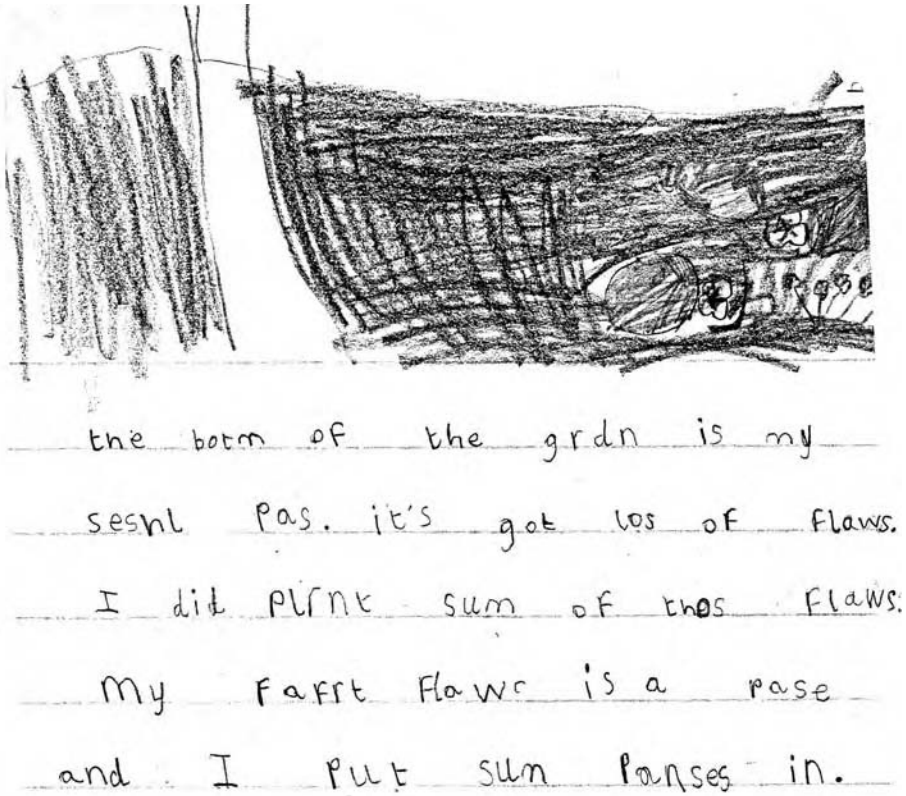 the botm of the grdn is my
seshl pas. it's got los of flaws.
I did plrnt sum of thos flaws.
My farrt flawr is a pase
and I put sum panses in.